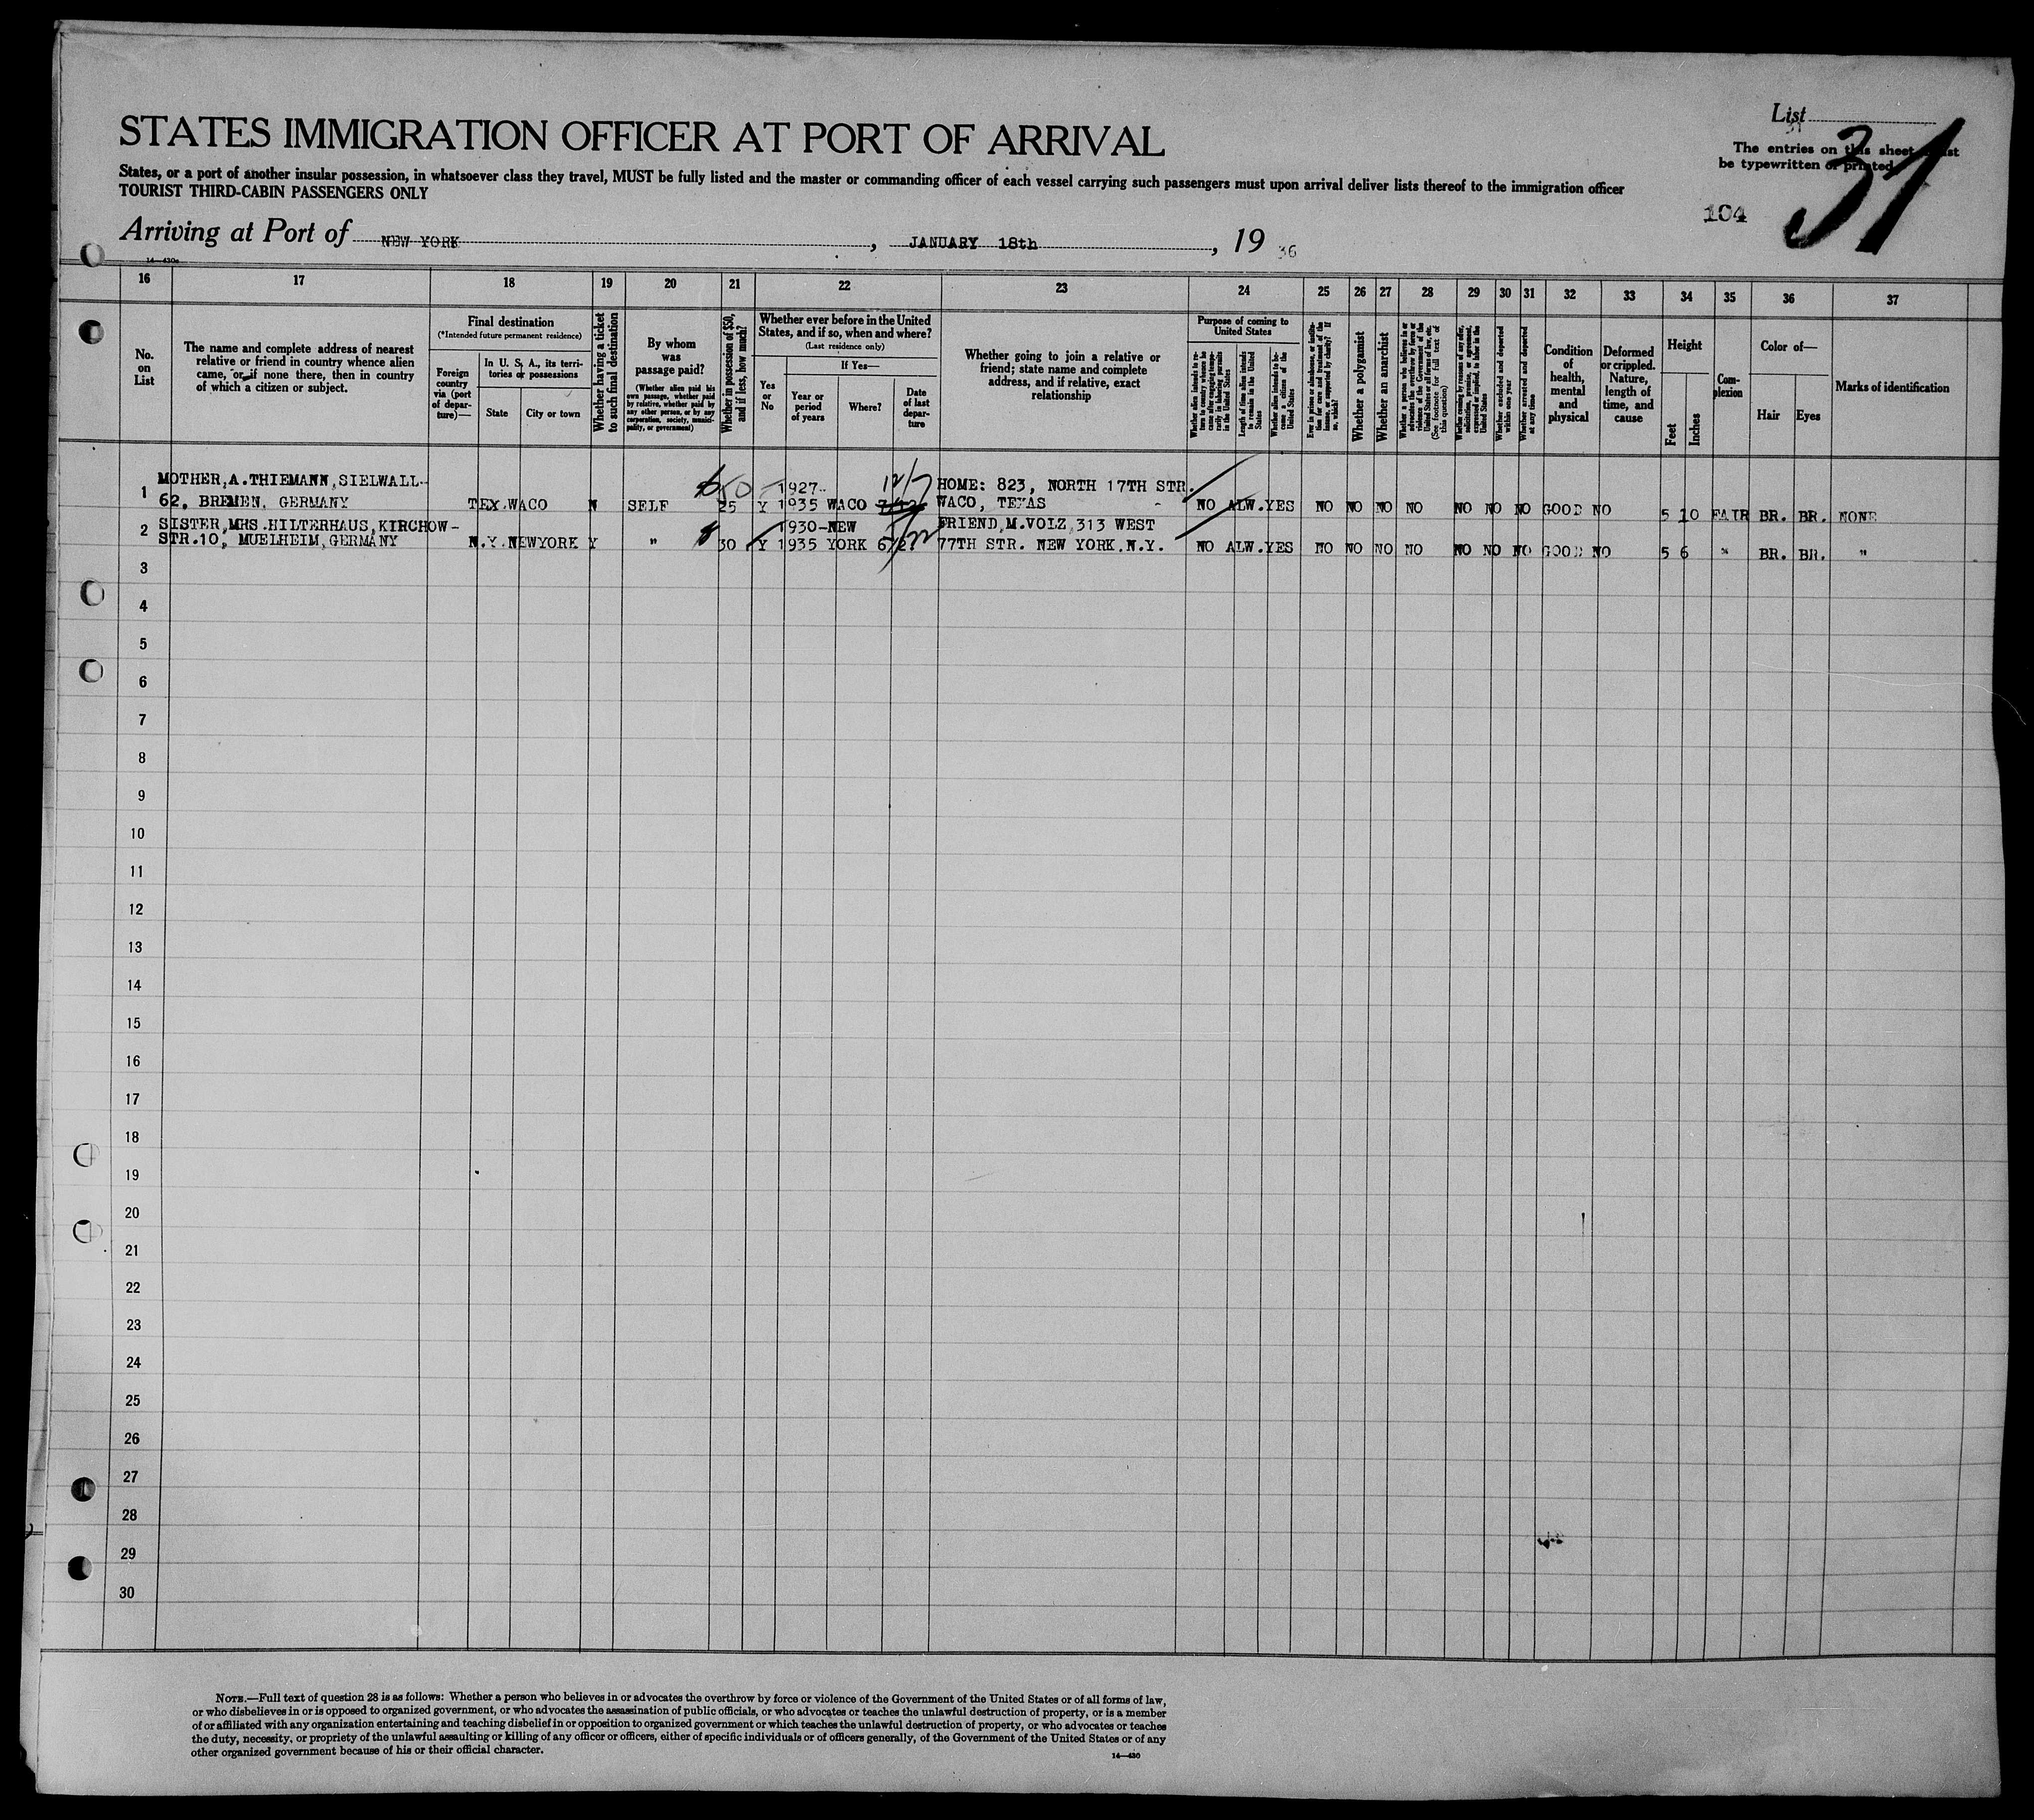 STATES IMMIGRATION OFFICER AT PORT OF ARRIVAL
List
31
The entries on this sheet must
be typewritten or printed
States, or a port of another insular possession, in whatsoever class they travel, MUST be fully listed and the master or commanding officer of each vessel carrying such passengers must upon arrival deliver lists thereof to the immigration officer
TOURIST THIRD-CABIN PASSENGERS ONLY
104
Arriving at Port of NEW YORK, JANUARY 18th, 19 36
14—430a
16 17 18 19 20 21 22 23 24 25 26 27 28 29 30 31 32 33 34 35 36 37
No. on List
The name and complete address of nearest
relative or friend in country whence alien
came, or if none there, then in country
of which a citizen or subject.
Final destination
(*Intended future permanent residence)
Foreign country via (port of departure)—
In U. S. A., its territories or possessions
State
City or town
Whether having a ticket to such final destination
By whom was passage paid?
(Whether alien paid his own passage, whether paid by relative, whether paid by any other person, or by any corporation, society, municipality, or government)
Whether in possession of $50, and if less, how much?
Whether ever before in the United
States, and if so, when and where?
(Last residence only)
Yes or No
If Yes—
Year or period of years
Where?
Date of last departure
Whether going to join a relative or
friend; state name and complete
address, and if relative, exact
relationship
Purpose of coming to United States
Length of time alien intends to remain in the United States
Whether alien intends to become a citizen of the United States
Whether a polygamist
Whether an anarchist
(See footnote for full text of this question)
Whether excluded and deported within one year
Whether arrested and deported at any time
Condition of health, mental and physical
Deformed or crippled. Nature, length of time, and cause
Height
Feet
Inches
Complexion
Color of—
Hair
Eyes
Marks of identification
MOTHER,A.THIEMANN,SIELWALL- 50 1927- 12/7 HOME: 823, NORTH 17TH STR.
1 62, BREMEN, GERMANY TEX. WACO N SELF 25 Y 1935 WACO WACO, TEXAS NO ALW. YES NO NO NO NO NO NO NO GOOD NO 5 10 FAIR BR. BR. NONE
2 SISTER,MRS.HILTERHAUS,KIRCHOW- 1930-NEW FRIEND,M.VOLZ,313 WEST
STR.10, MUELHEIM,GERMANY N.Y. NEWYORK Y " 30 Y 1935 YORK 77TH STR. NEW YORK.N.Y. NO ALW. YES NO NO NO NO NO NO NO GOOD NO 5 6 " BR. BR. "
3
4
5
6
7
8
9
10
11
12
13
14
15
16
17
18
19
20
21
22
23
24
25
26
27
28
29
30
NOTE.—Full text of question 28 is as follows: Whether a person who believes in or advocates the overthrow by force or violence of the Government of the United States or of all forms of law,
or who disbelieves in or is opposed to organized government, or who advocates the assassination of public officials, or who advocates or teaches the unlawful destruction of property, or is a member
of or affiliated with any organization entertaining and teaching disbelief in or opposition to organized government or which teaches the unlawful destruction of property, or who advocates or teaches
the duty, necessity, or propriety of the unlawful assaulting or killing of any officer or officers, either of specific individuals or of officers generally, of the Government of the United States or of any
other organized government because of his or their official character.
14—430